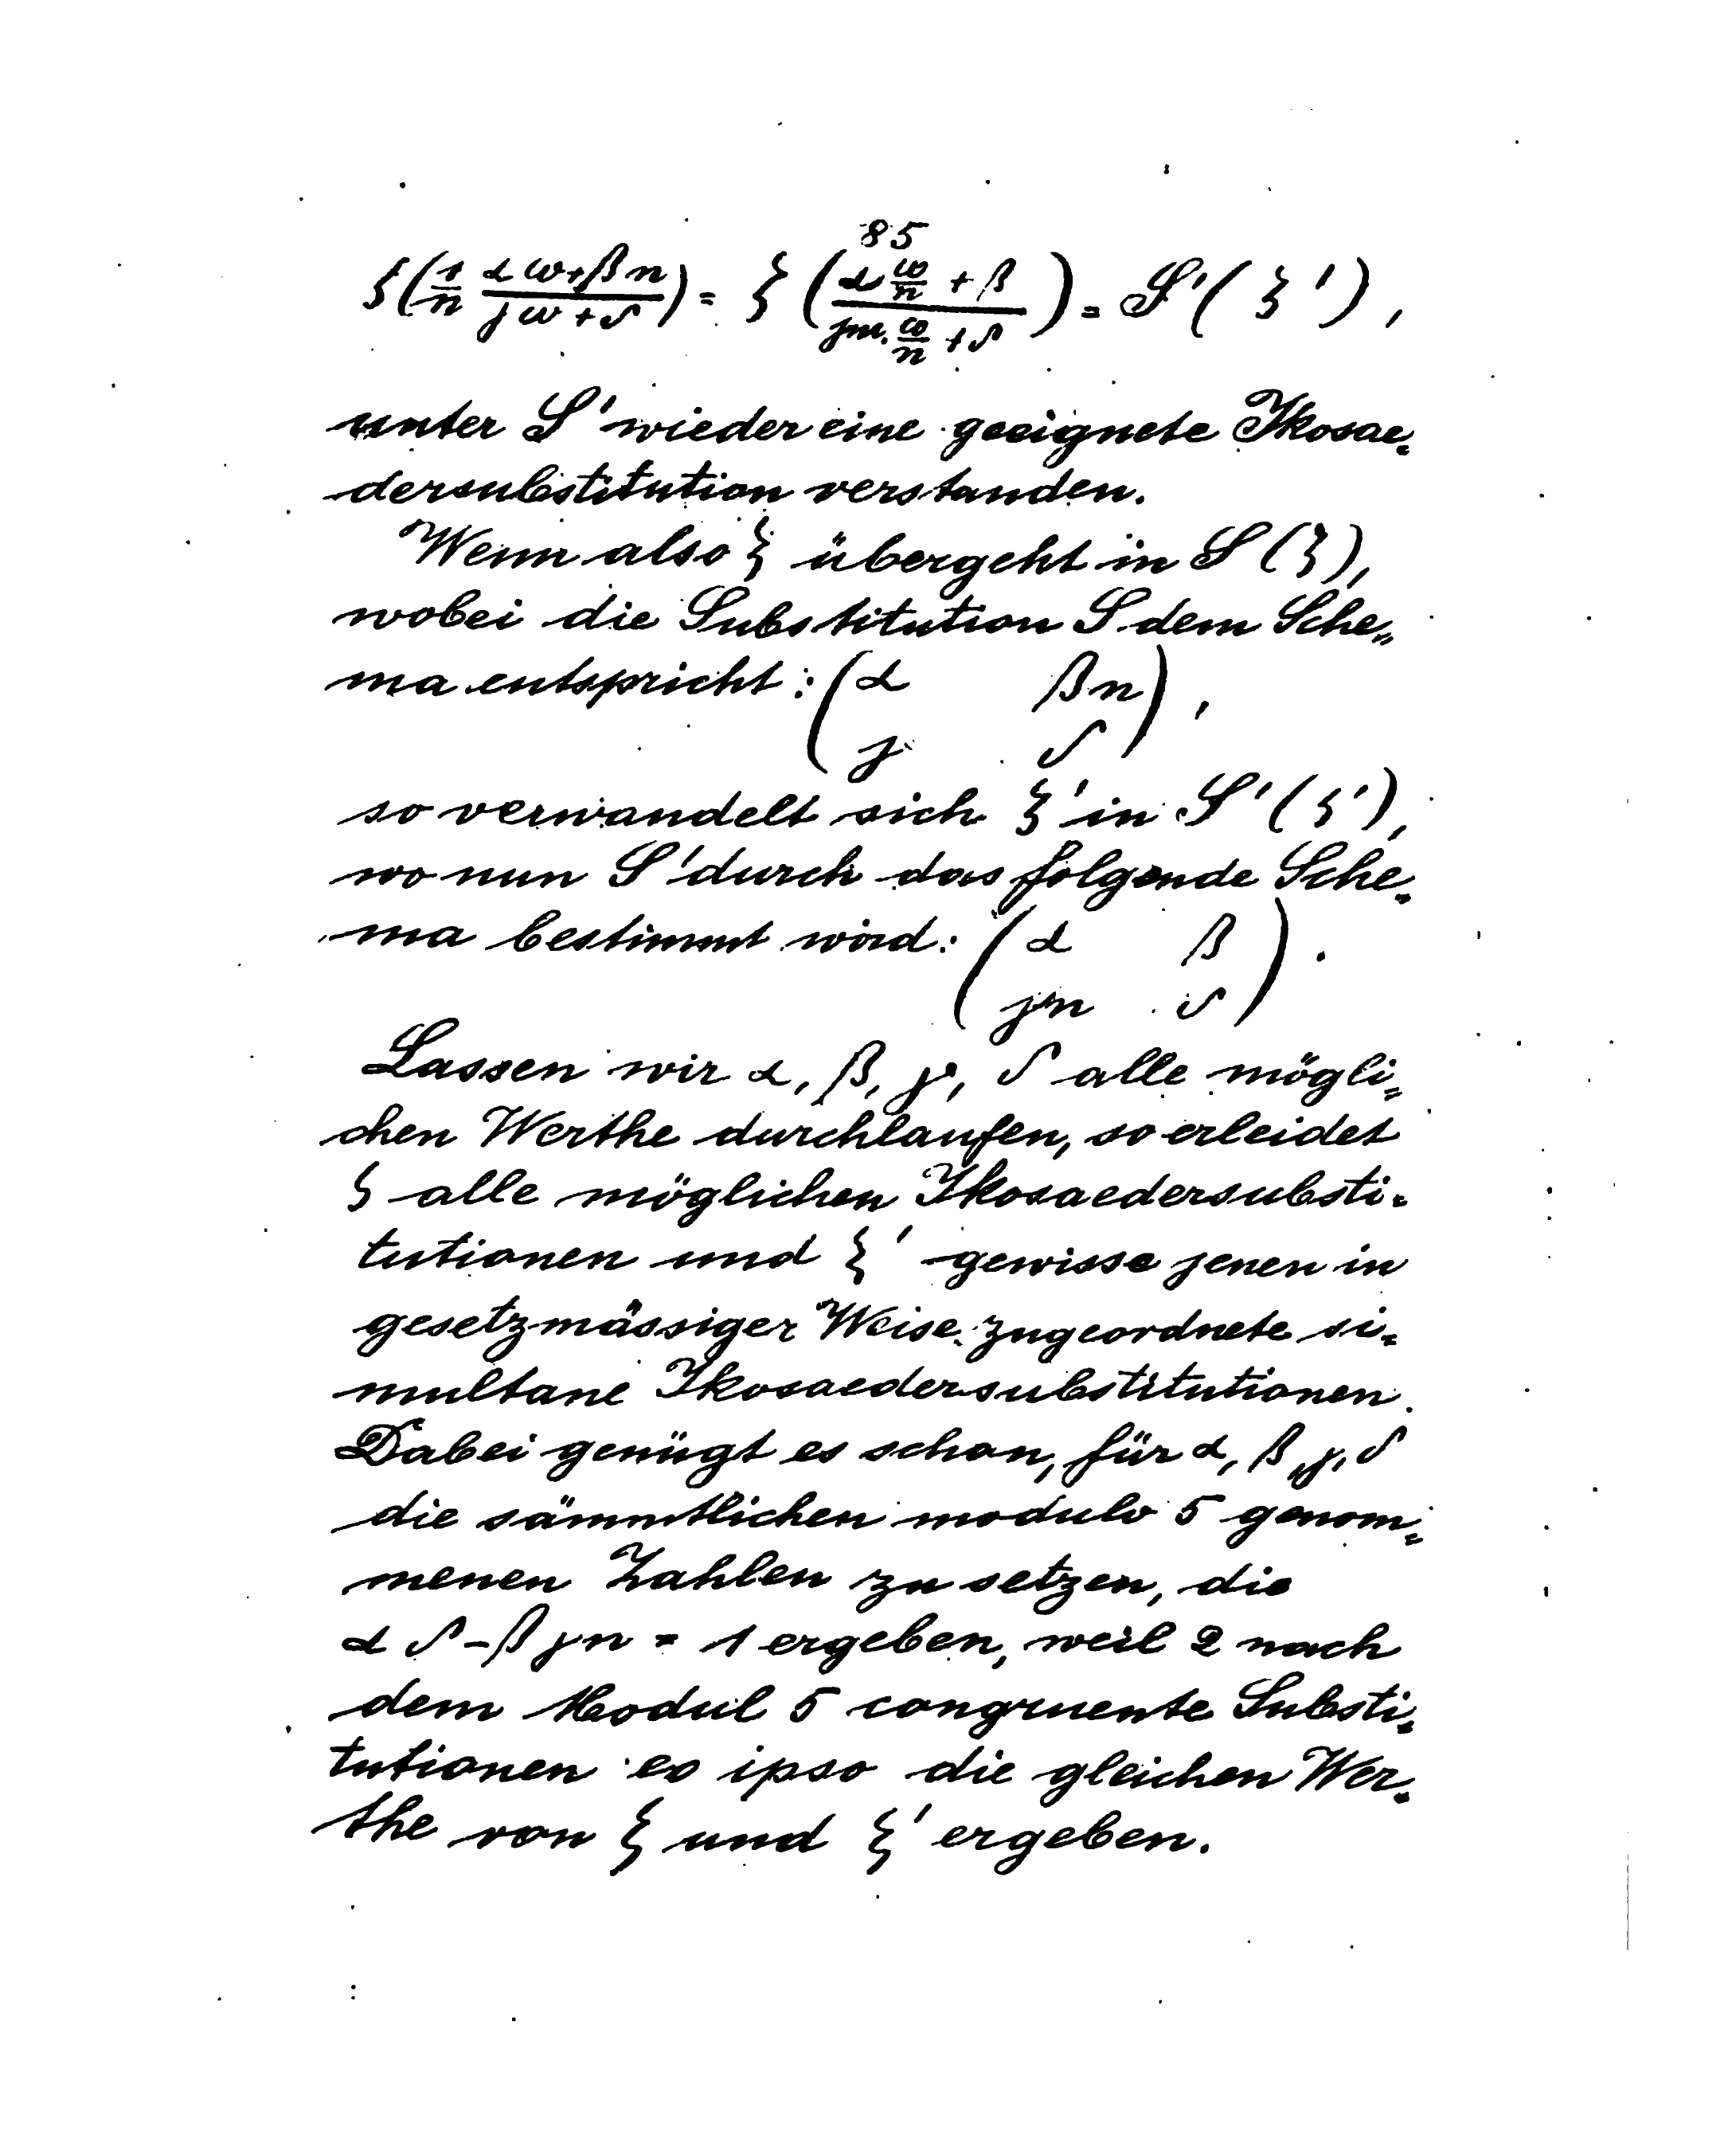 85
ξ(1/n (αω+βn)/(γω+δ)) = ξ((α ω/n + β)/(γn. ω/n + δ)) = S'(ξ'),
unter S' wieder eine geeignete Ikosae-
dersubstitution verstanden.
Wenn also ξ übergeht in S(ξ),
wobei die Substitution S dem Sche-
ma entspricht: (α βn),
(γ δ)
so verwandelt sich ξ' in S'(ξ'),
wo nun S' durch das folgende Sche-
ma bestimmt wird: (α β).
(γn δ)
Lassen wir α, β, γ, δ alle mögli-
chen Werthe durchlaufen, so erleidet
ξ alle möglichen Ikosaedersubsti-
tutionen und ξ' gewisse jenen in
gesetzmässiger Weise zugeordnete si-
multane Ikosaedersubstitutionen.
Dabei genügt es schon, für α, β, γ, δ
die sämmtlichen modulo 5 genom-
menen Zahlen zu setzen, die
αδ-βγn = 1 ergeben, weil 2 nach
dem Modul 5 congruente Substi-
tutionen eo ipso die gleichen Wer-
the von ξ und ξ' ergeben.